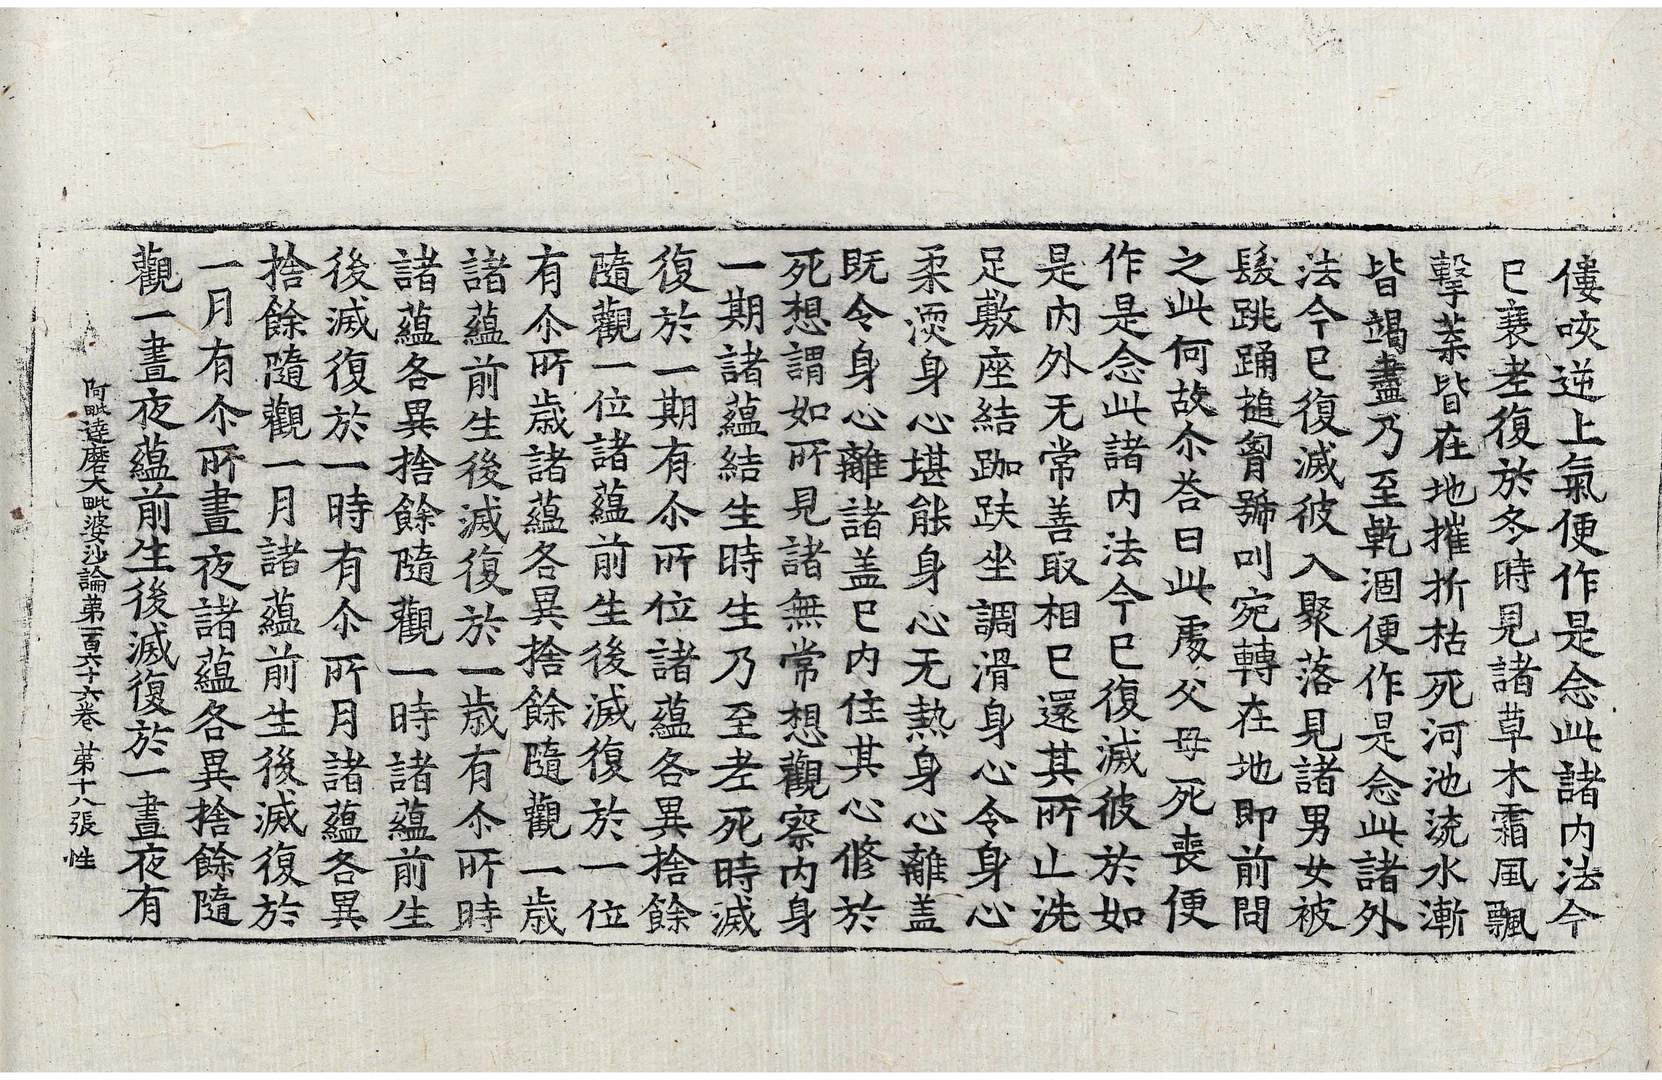 僂咳逆上氣便作是念此諸内法今
已衰老復於冬時見諸草木霜風飄
擊葉皆在地摧折枯死河池流水漸
皆竭盡乃至乹涸便作是念此諸外
法今已復滅彼入聚落見諸男女被
髮跳踊搥胷號叫宛轉在地即前問
之此何故尒荅曰此處父母死喪便
作是念此諸内法今已復滅彼於如
是内外无常善取相已還其所止洗
足敷座結跏趺坐調滑身心令身心
柔渜身心堪能身心无熱身心離盖
既令身心離諸盖已内住其心修於
死想謂如所見諸無常想觀察内身
一期諸蘊結生時生乃至老死時滅
復於一期有尒所位諸蘊各異捨餘
隨觀一位諸蘊前生後滅復於一位
有尒所歳諸蘊各異捨餘隨觀一歳
諸蘊前生後滅復於一歳有尒所時
諸蘊各異捨餘隨觀一時諸蘊前生
後滅復於一時有尒所月諸蘊各異
捨餘隨觀一月諸蘊前生後滅復於
一月有尒所晝夜諸蘊各異捨餘隨
觀一晝夜蘊前生後滅復於一晝夜有
阿毗達磨大毗婆沙論第一百六十六卷 第十八張 性